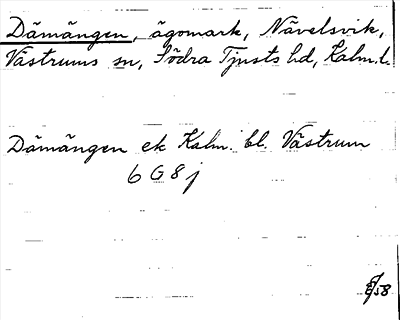 Dämängen, ägomark, Nävelsvik,
Västrums sn, Södra Tjusts hd, Kalm.l.
Dämängen ek Kalm. bl. Västrum
6 G 8 j